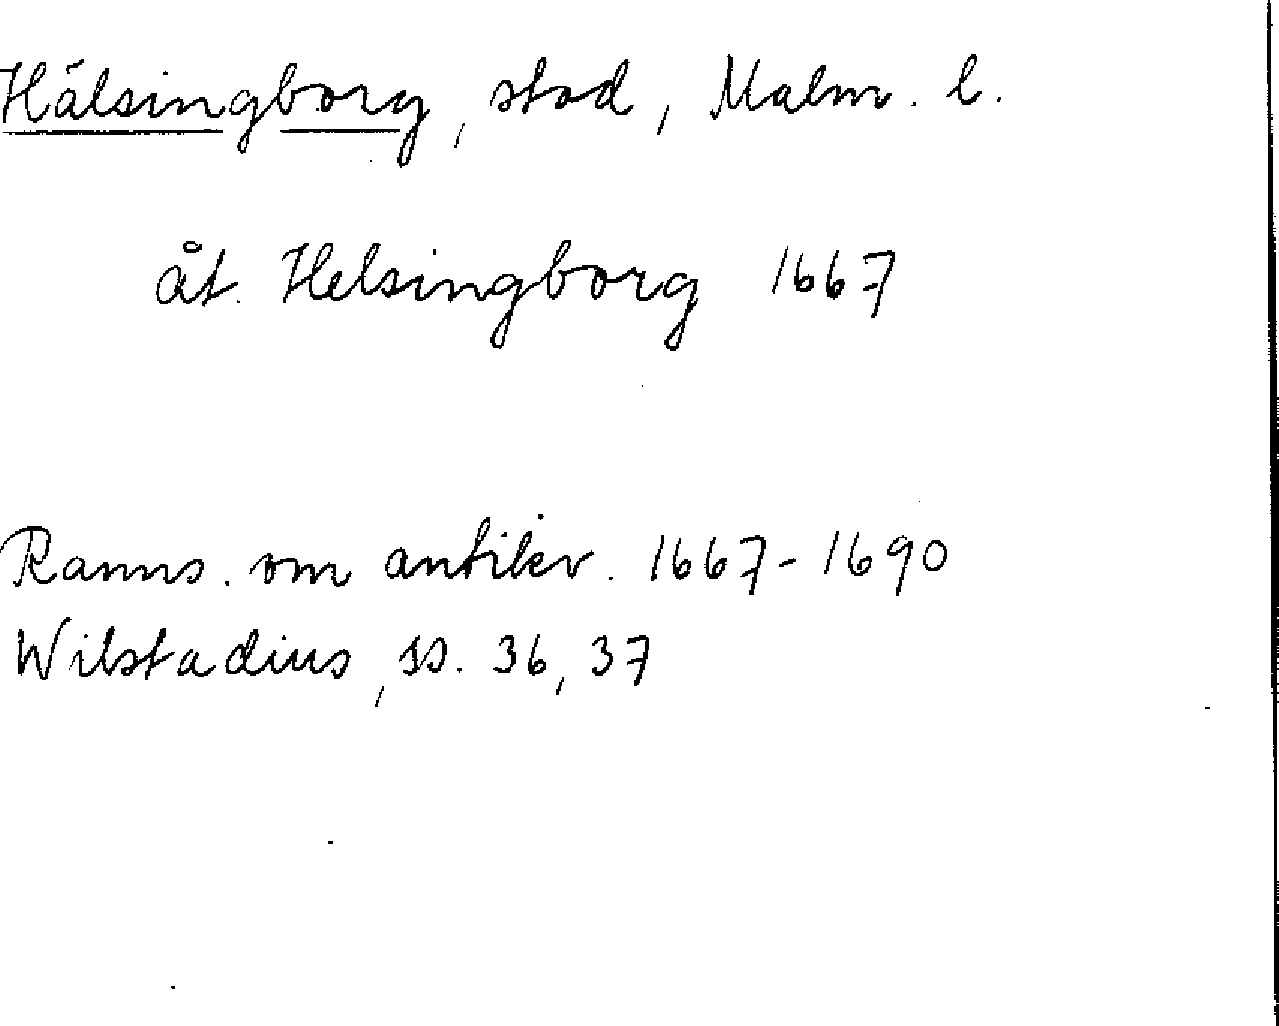 Hälsingborg, stad, Malm. l.
åt. Helsingborg 1667
Ranns. om antikv. 1667-1690
Wilstadius, ss. 36, 37